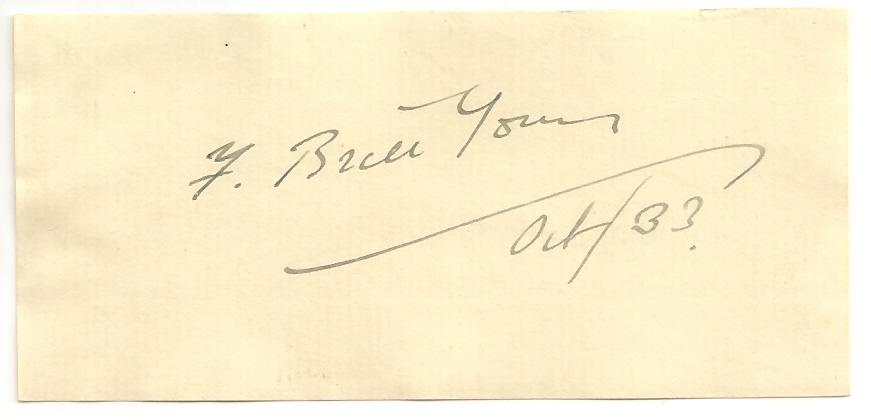 F. Brett Young
Oct/33.